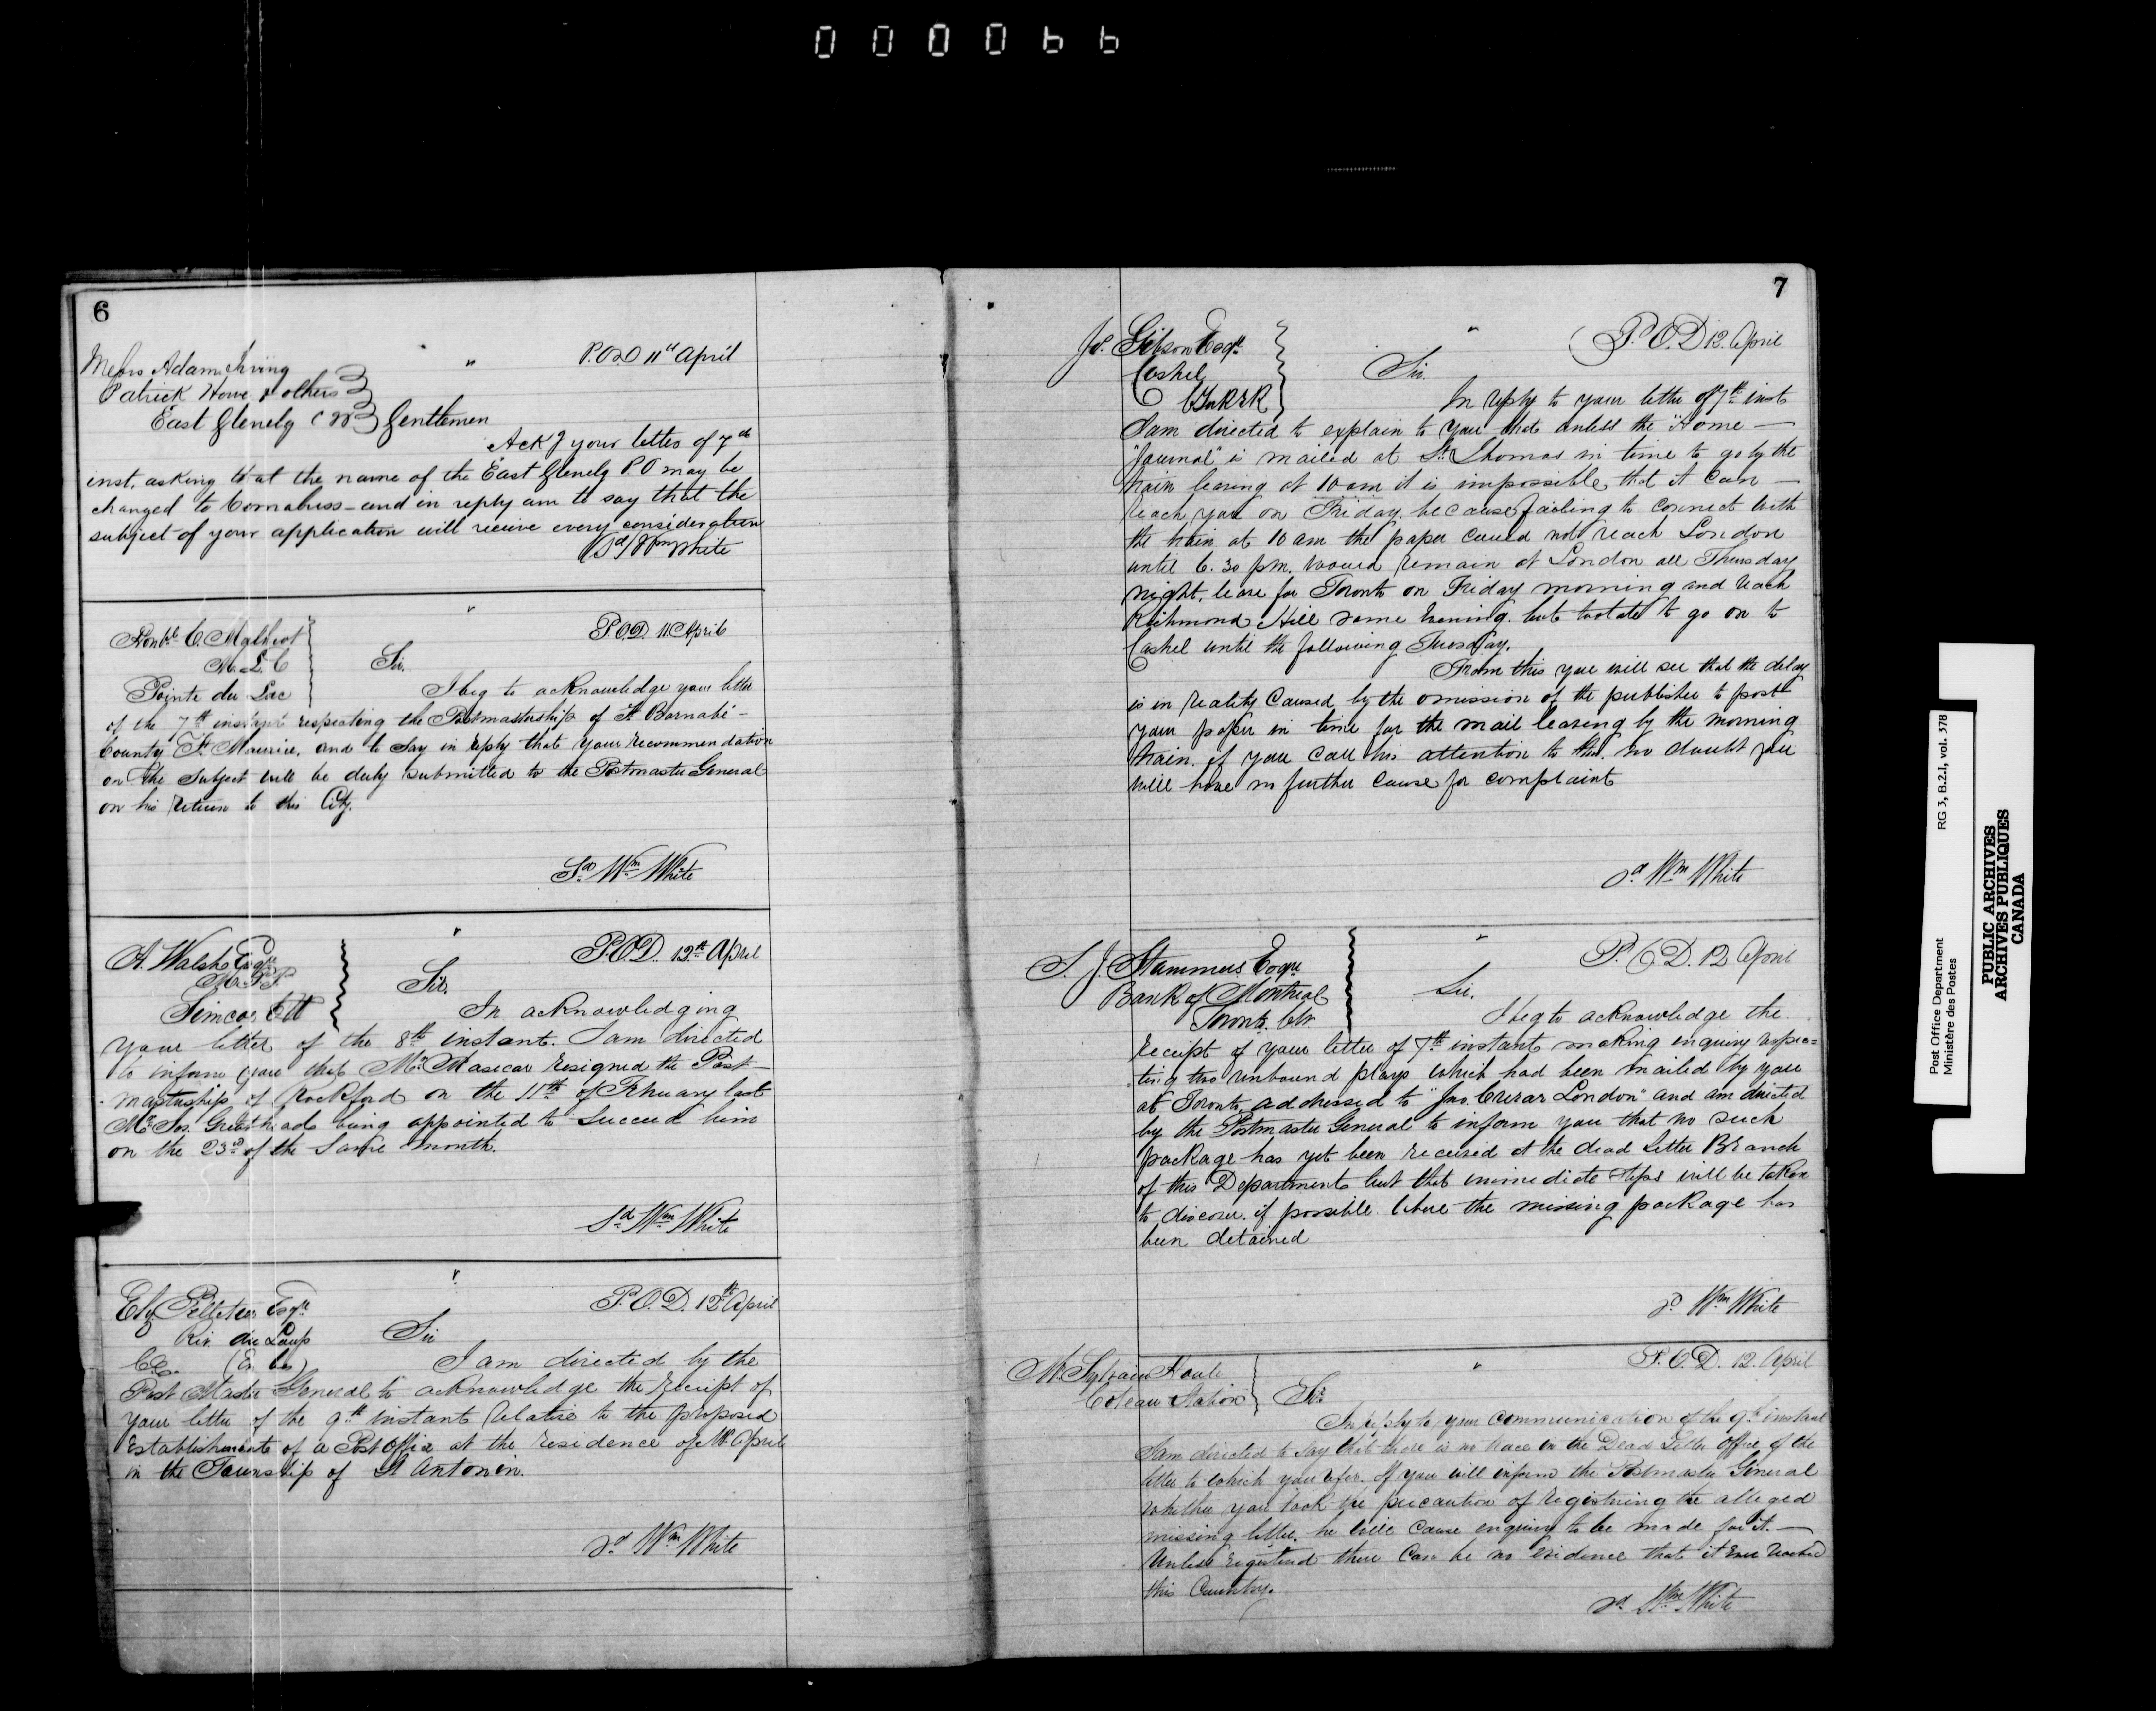 000066
6
P.O.D 11th April
Messrs Adam Irving
Patrick Howe & others
East Glenelg CW Gentlemen
Ackg your letter of 7th
inst, asking that the name of the East Glenelg P.O may be
changed to - and in reply am to say that the
subject of your application will receive every consideration
(Sd) Wm White
P.O.D. 11 April
Honble C. Malhiot
M. L. C
Sir.
Pointe du Lac
I beg to acknowledge your letter
of the 7th instant respecting the Postmastership of St Barnabé -
County St Maurice, and to say in reply that your recommendation
on the subject will be duly submitted to the Postmaster General
on his return to this City.
Sd Wm White
P.O.D. 12th April
A. Walsh Esqre
M.P.P.
Simcoe CW
Sir.
In acknowledging
your letter of the 8th instant. I am directed
to inform you that Mr. Masecar resigned the Post-
mastership of Rockford on the 11th of February last
Mr Jos. Greathead being appointed to succeed him
on the 23rd of the same month.
Sd Wm White
P.O.D. 12th April
Elz Pelletier Esqre
Riv. du Loup
Sir
C.E. (En bas)
I am directed by the
Post Master General to acknowledge the receipt of
your letter of the 9th instant relative to the proposed
establishment of a Post Office at the residence of Mr. April
in the Township of St Antonin.
Sd Wm White
7
P.O.D 12. April
Jos. Gibson Esqre
Cashel
Sir.
In reply to your letter of 7th inst
I am directed to explain to you that unless the "Home —
"Journal" is mailed at St. Thomas in time to go by the
train leaving at 10 am it is impossible that it can —
reach you on Friday, because failing to connect with
the train at 10 am the paper could not reach London
until 6.30 pm. would remain at London all Thursday
night, leave for Toronto on Friday morning and reach
Richmond Hill same evening. but too late to go on to
Cashel until the following Tuesday.
From this you will see that the delay
is in reality caused by the omission of the publisher to post
your paper in time for the mail leaving by the morning
train. if you call his attention to this. no doubt you
will have no further cause for complaint
Sd Wm White
P.O.D. 12 April
S. J. Stammers Esqre
Bank of Montreal
Toronto. CW
Sir.
I beg to acknowledge the
receipt of your letter of 7th instant making enquiry respec=
ting two unbound plays which had been mailed by you
at Toronto addressed to "Jno. Crerar London" and am directed
by the Postmaster General to inform you that no such
package has yet been received at the dead letter Branch
of this Department but that immediate steps will be taken
to discover. if possible where the missing package has
been detained
Sd Wm White
P.O.D. 12. April
Mr. Sylvain
Coteau Station
Sir
In reply to your communication of the 9th instant
I am directed to say that there is no trace in the Dead Letter Office, of the
letter to which you refer. If you will inform the Postmaster General
whether you took the precaution of registering the alleged
missing letter, he will cause enquiry to be made for it. —
Unless registered there can be no evidence that it ever reached
this Country.
Sd Wm White
Post Office Department
Ministère des Postes
RG 3, B.2.I, vol. 378
PUBLIC ARCHIVES
ARCHIVES PUBLIQUES
CANADA